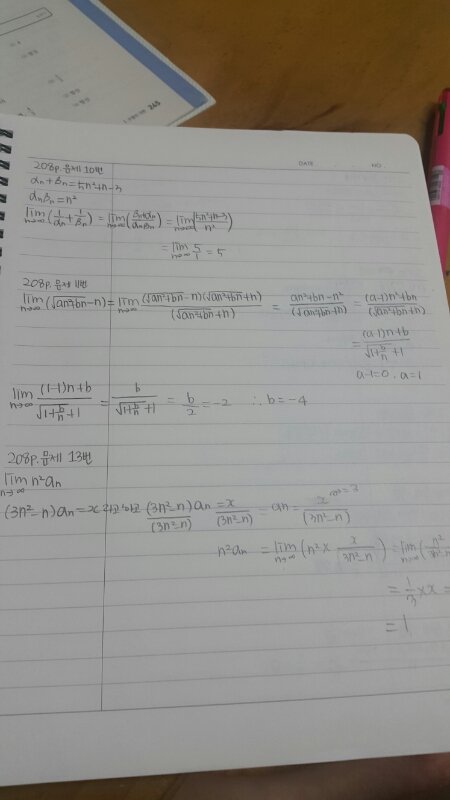 245
DATE. . . NO.
208p. 문제 10번
αn + βn = 5n²+n-3
αnβn = n²
lim n→∞ (1/αn + 1/βn) = lim n→∞ (βn+αn / αnβn) = lim n→∞ (5n²+n-3 / n²)
= lim n→∞ 5/1 = 5
208p. 문제 11번
lim n→∞ (√an²+bn - n) = lim n→∞ (√an²+bn - n)(√an²+bn + n) / (√an²+bn + n) = an²+bn-n² / (√an²+bn + n) = (a-1)n²+bn / (√an²+bn + n)
= (a-1)n+b / √1+b/n + 1
a-1=0, a=1
lim n→∞ (1-1)n+b / √1+b/n + 1 = b / √1+b/n + 1 = b/2 = -2 ∴ b = -4
208p. 문제 13번
lim n→∞ n²an
(3n²-n)an = x 라고 하고 (3n²-n)an / (3n²-n) = x / (3n²-n) = an = x / (3n²-n)
n²an = lim n→∞ (n² × x / 3n²-n) = lim n→∞ (n² / 3n²-n
= 1/3 × x =
= 1